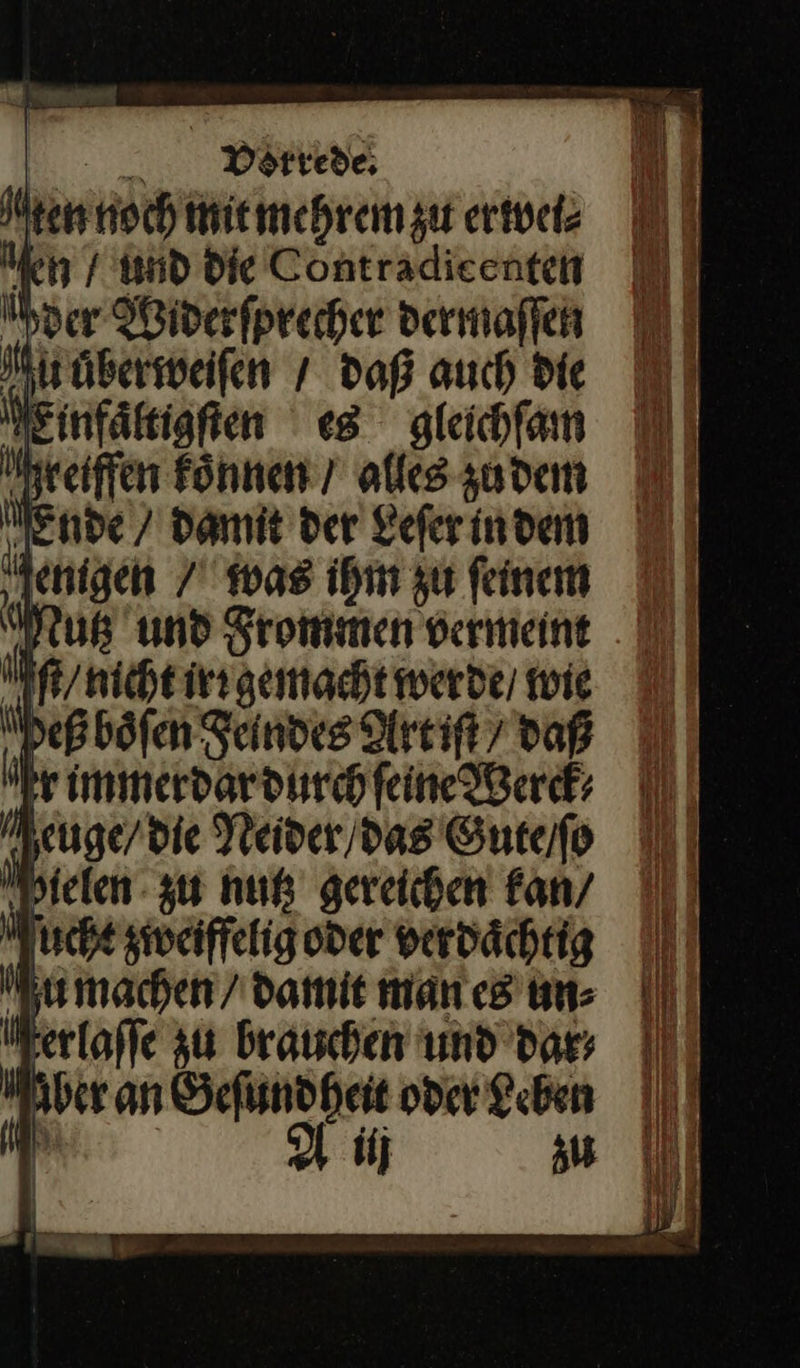 Vorrede.
ten noch mit mehrem zu erwei⸗
en / und die Contradicenten
der Widerſprecher dermaſſen
zu uͤberweiſen / daß auch die
Einfaͤltigſten es gleichſam
greiffen koͤnnen / alles zu dem
Ende / damit der Leſer in dem
jenigen / was ihm zu ſeinem
Nutz und Frommen vermeint
iſt / nicht irꝛ gemacht werde / wie
deß boͤſen Feindes Art iſt / daß
er immerdar durch ſeine Werck⸗
zeuge / die Neider / das Gute / ſo
vielen zu nutz gereichen kan /
ſucht zweiffelig oder verdaͤchtig
zu machen / damit man es un⸗
terlaſſe zu brauchen und dar⸗
uͤber an Geſundheit oder Leben
A iij zu